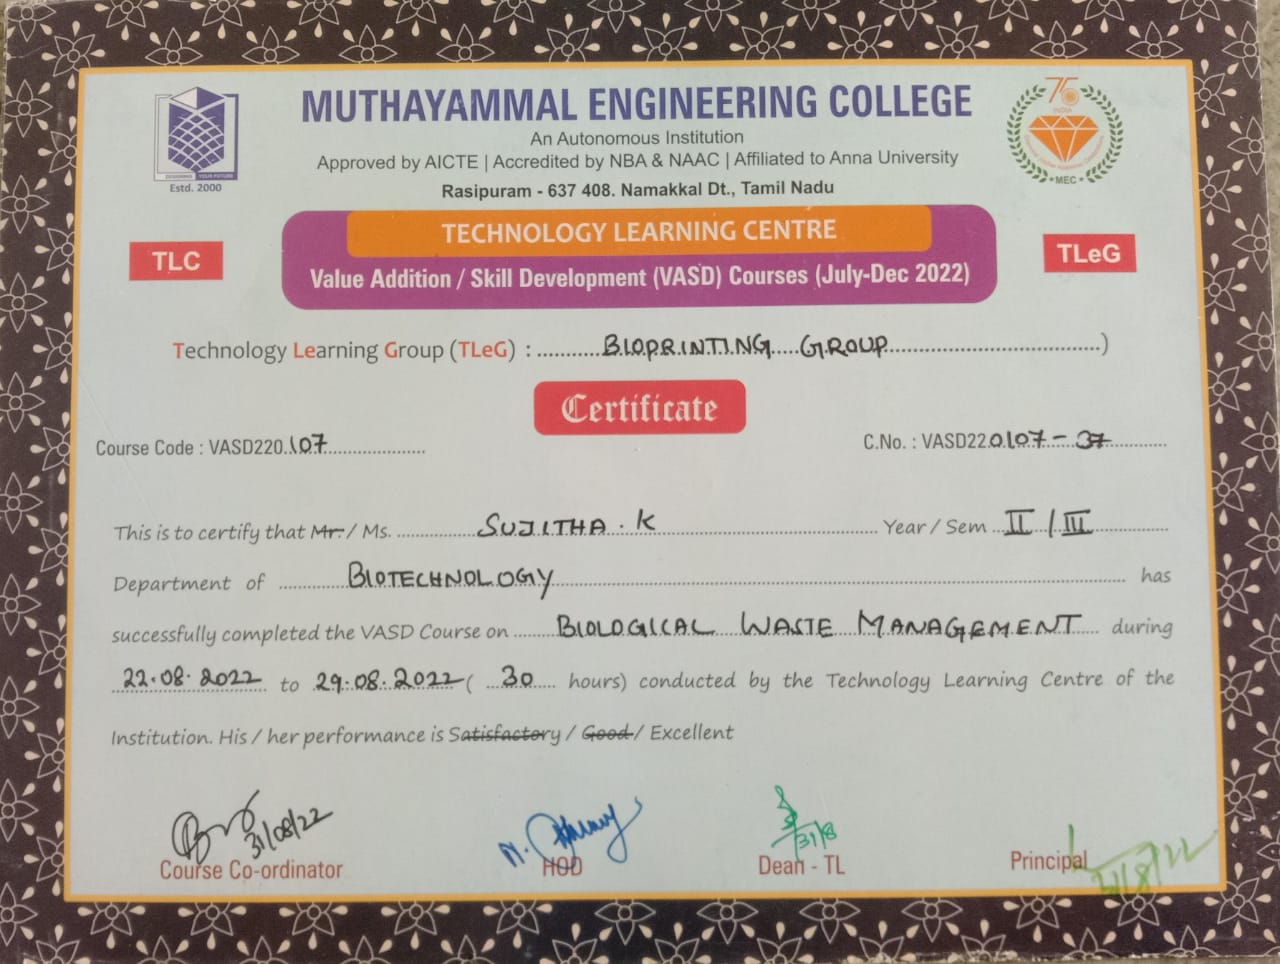 MUTHAYAMMAL ENGINEERING COLLEGE
An Autonomous Institution
Approved by AICTE | Accredited by NBA & NAAC | Affiliated to Anna University
Rasipuram - 637 408. Namakkal Dt., Tamil Nadu
DESIGNING YOUR FUTURE
Estd. 2000
75
INDIA
MEC
TECHNOLOGY LEARNING CENTRE
TLC
Value Addition / Skill Development (VASD) Courses (July-Dec 2022)
TLeG
Technology Learning Group (TLeG) : BIOPRINTING GROUP )
Certificate
Course Code : VASD220107
C.No. : VASD220107-37
This is to certify that Mr. / Ms. SUJITHA. K Year / Sem II / III
Department of BIOTECHNOLOGY has
successfully completed the VASD Course on BIOLOGICAL WASTE MANAGEMENT during
22.08.2022 to 29.08.2022 ( 30 hours) conducted by the Technology Learning Centre of the
Institution. His / her performance is Satisfactory / Good / Excellent
31/08/22
31/8
Course Co-ordinator
HOD
Dean - TL
Principal